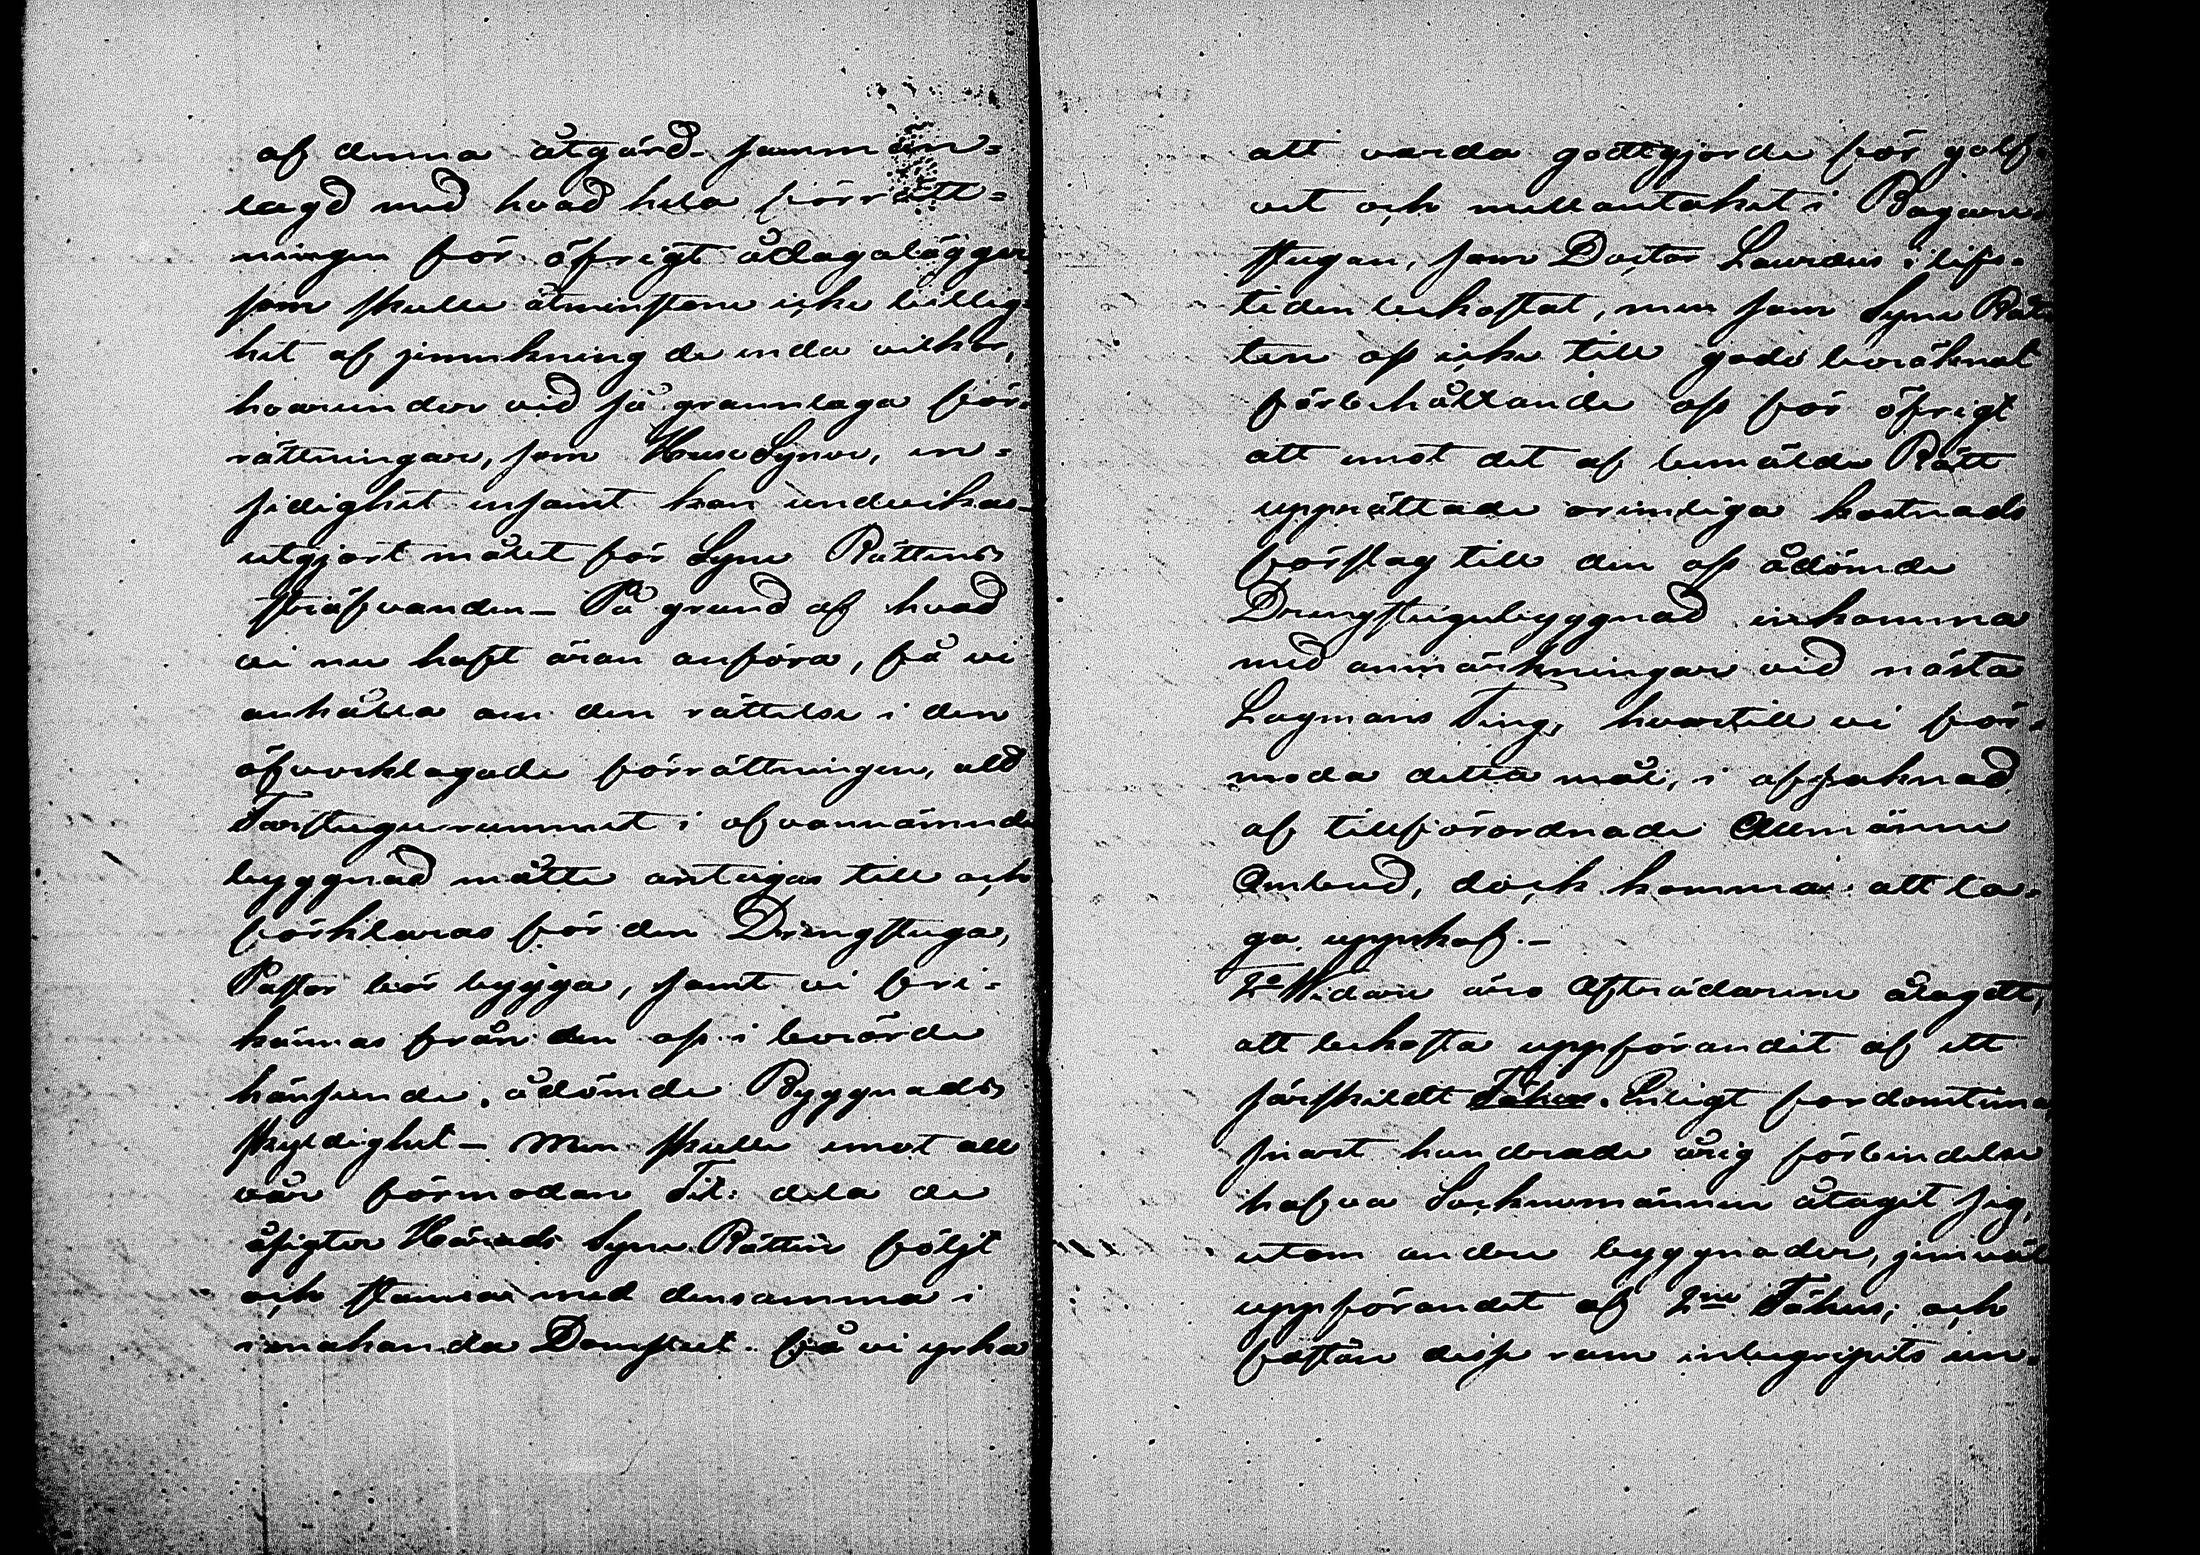 af denna åtgärd sammän-
lagd med hvad hela förrätt-
ningen för öfrigt ådagalägger,
som skulle åtminstone icke billig-
het af jemkning de enda vilkor,
hvarunder vid så grannlaga för-
rättningar, som HuseSyner, en-
sidighet ensamt kan undvikas
utgjort målet för Syne Rättens
sträfvanden – På grund af hvad
vi nu haft äran anföra, få vi
anhålla om den rättelse i den
öfverklagade förrättningen, att
Farstugurummet i ofvannämnde
byggnad måtte antagas till och
förklaras för den Drengstuga,
Pastor bör bygga, samt vi fri-
kännas från den oss i berörde
hänseende ådömde Byggnads
skyldighet – Men skulle emot all
vår förmodan Tit: dela de
åsigter Härads Syne Rätten följt
och stanna med densamma i
enahanda Domslut. få vi yrka
att varda godtgjorde för golf-
vet och mellantaket i Bagare-
stugan, som Doctor Lauræus i lifs-
tiden bekostat, men som Syne Rät-
ten oss icke till godo beräknat
förbehållande oss för öfrigt
att emot det af bemälde Rätt
upprättade orimliga kostnads
förslag till den oss ådömde
Drengstugubyggnad inkomma
med anmärkningar vid nästa
Lagmans Ting, hvartill vi för-
moda detta mål, i afsaknad
af tillförordnade Allmänne
Ombud, dock komma att ta-
ga uppskof. –
2º Vidare äro Afträdarene ålagde,
att bekosta uppförandet af ett
särskildt Fähus. Enligt fordomtima
snart hundrade årig förbindelse
hafva Socknemännen åtagit sig,
utom andre byggnader, jemväl
uppförandet af 2ne Fähus; och
fastän desse rum inbegripits un-